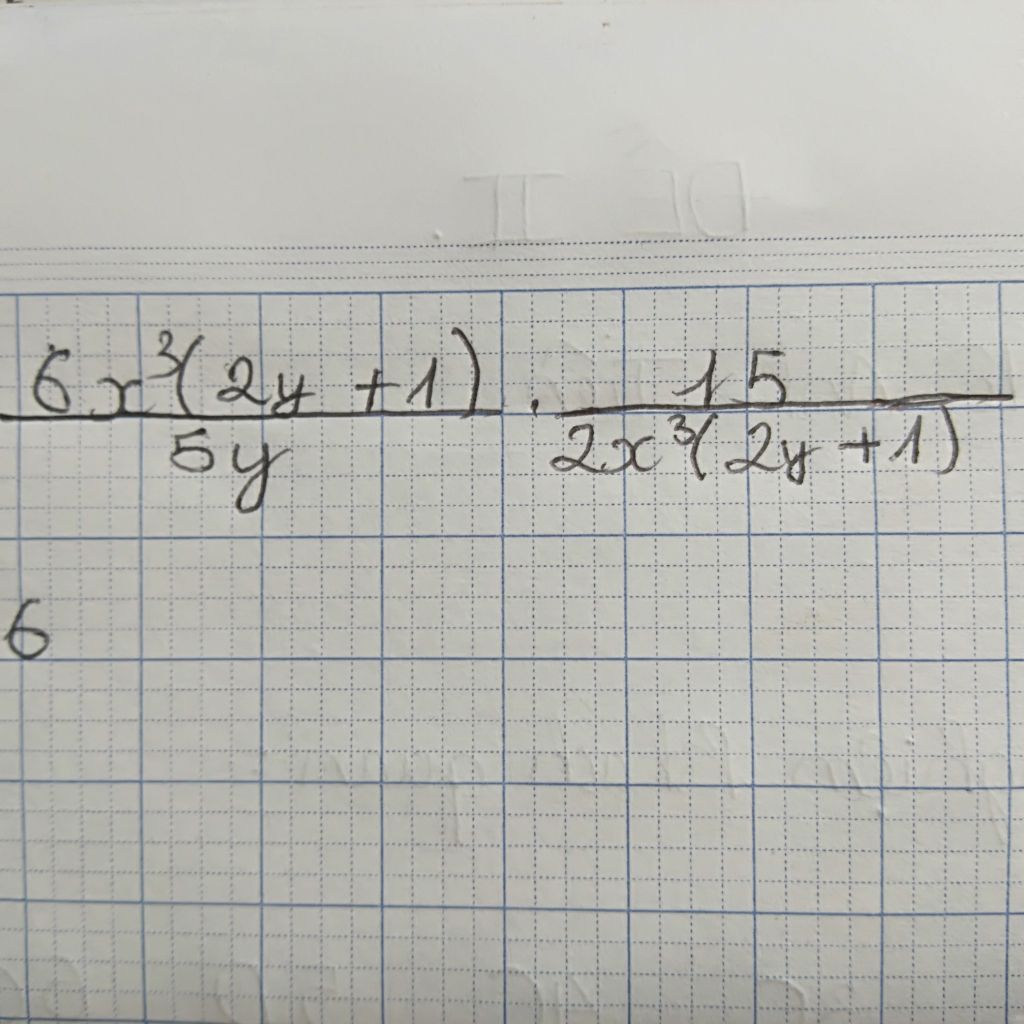 6x³(2y + 1) / 5y · 15 / 2x³(2y + 1)
6